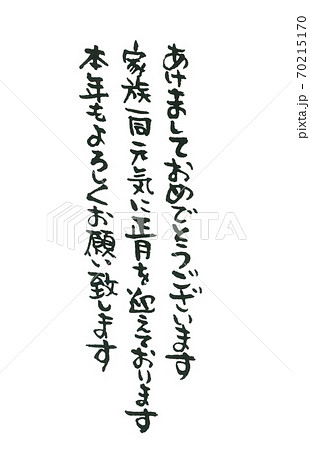 あけましておめでとうございます
家族一同元気に正月を迎えております
本年もよろしくお願い致します
PIXTA
pixta.jp - 70215170